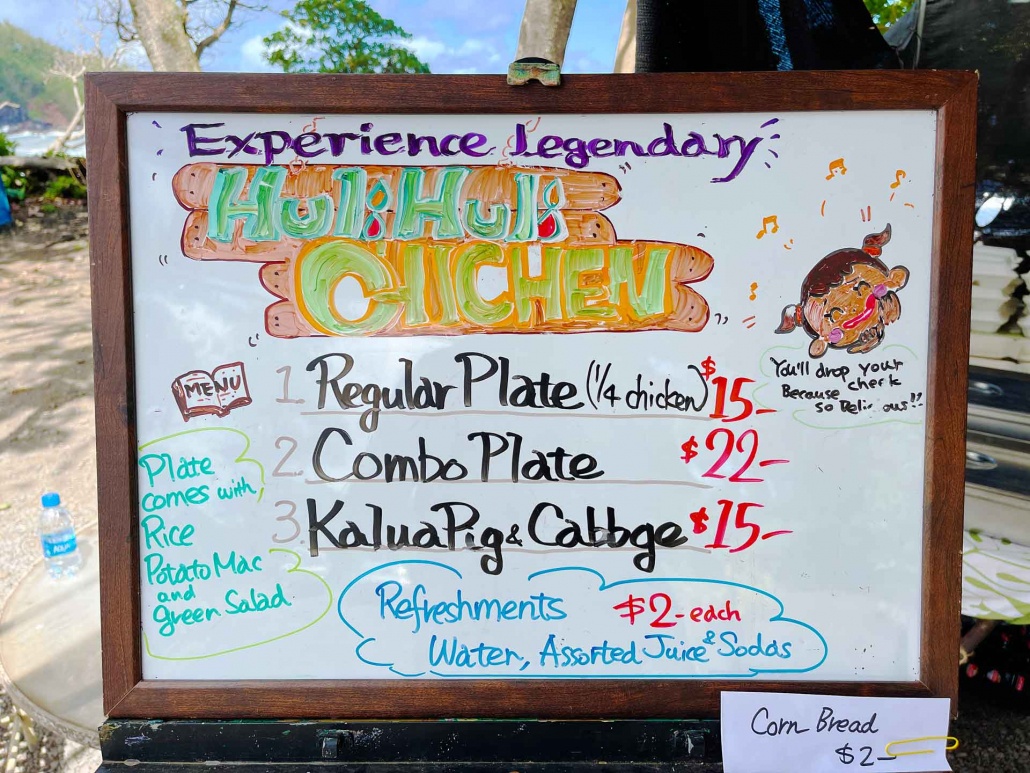 Experience Legendary
Huli Huli
CHICHEN
MENU
1. Regular Plate (1/4 chicken) $15-
2. Combo Plate $22-
3. Kalua Pig & Cabbge $15-
You'll drop your
cherk
Because
so Delicious!!
Plate
comes with,
Rice
Potato Mac
and
green Salad
Refreshments $2-each
Water, Assorted Juice & Sodas
Corn Bread
$2-